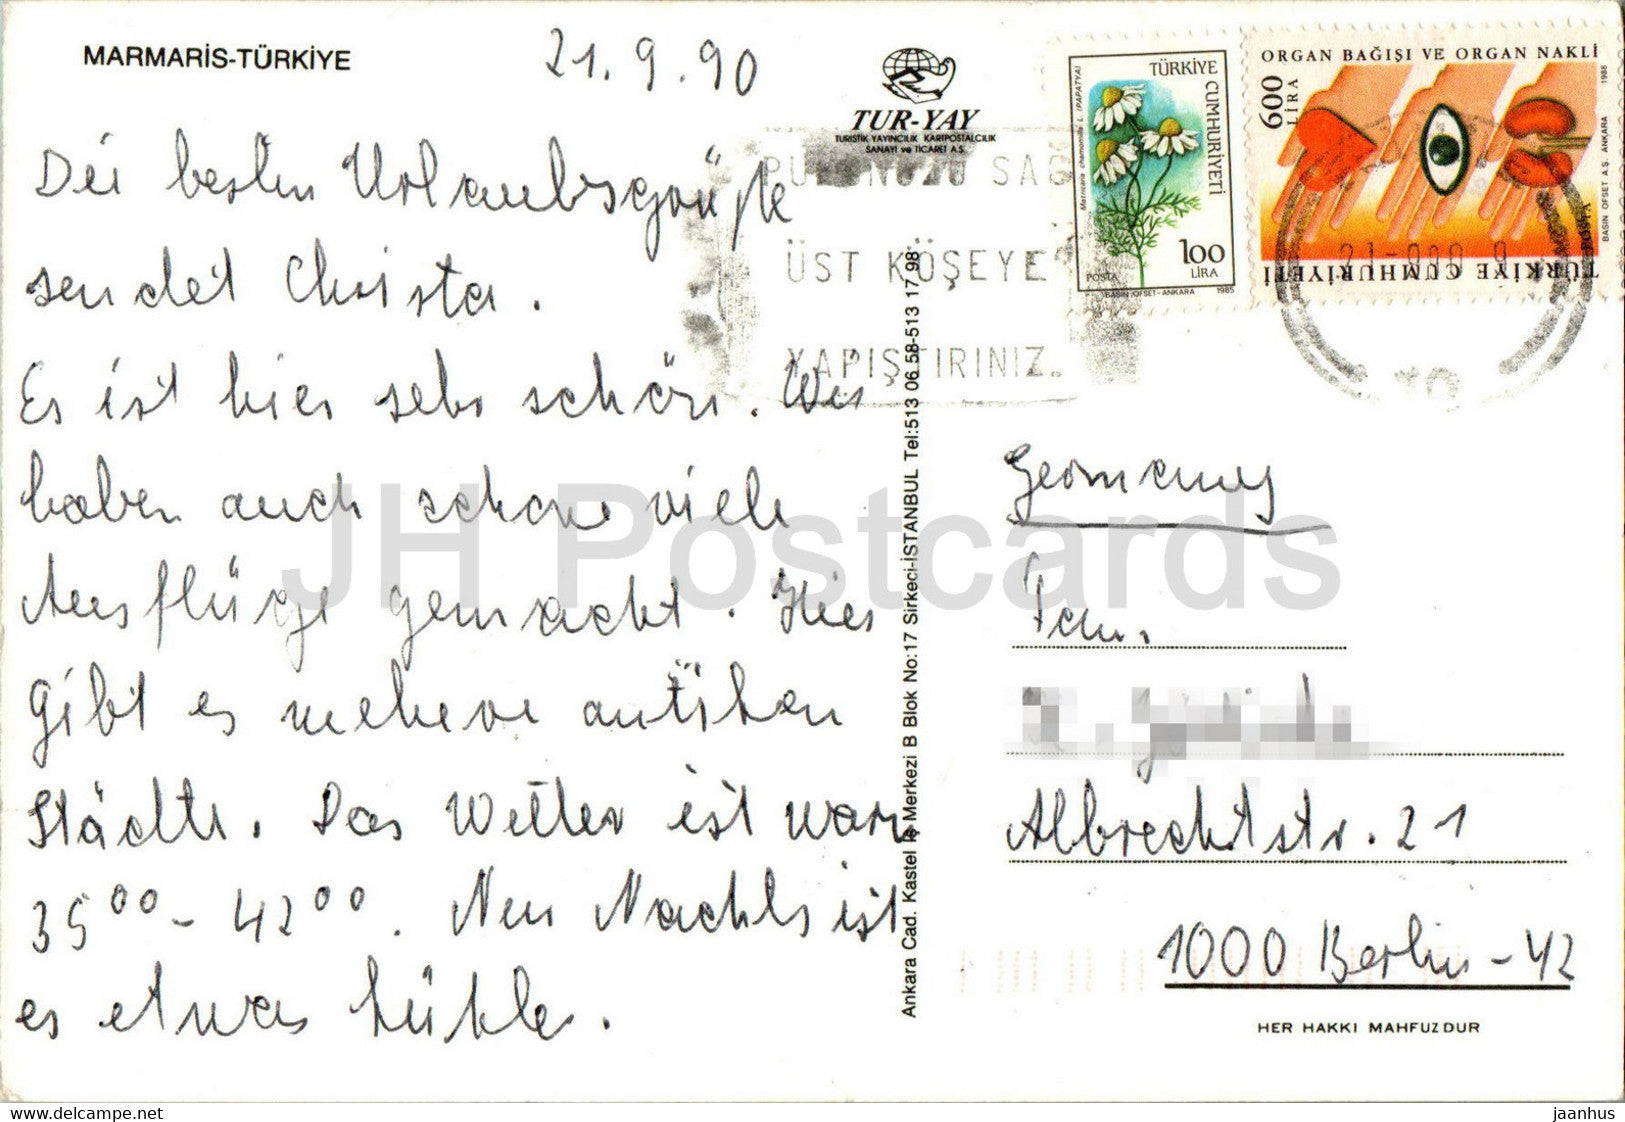 MARMARİS-TÜRKİYE
21.9.90
TUR-YAY
TURİSTİK YAYINCILIK KARTPOSTALCILIK
SANAYİ ve TİCARET A.Ş.
Die besten Urlaubsgrüße
sendet Christa.
Es ist hier sehr schön. Wir
haben auch schon viele
Ausflüge gemacht. Hier
gibt es mehrere antiken
Städte. Das Wetter ist warm
35⁰⁰ - 42⁰⁰. Nur Nachts ist
es etwas kühler.
Ankara Cad. Kastel İş Merkezi B Blok No:17 Sirkeci-İSTANBUL Tel:513 06 58-513 17 98
SAĞ
ÜST KÖŞEYE
YAPIŞTIRINIZ.
TÜRKİYE CUMHURİYETİ
Matricaria chamomilla L. (PAPATYA)
100
LİRA
POSTA
BASIN OFSET-ANKARA 1985
ORGAN BAĞIŞI VE ORGAN NAKLİ
600
LİRA
TÜRKİYE CUMHURİYETİ
POSTA
BASIN OFSET A.Ş. ANKARA 1988
Germany
Fam.
Albrechtstr. 21
1000 Berlin-42
HER HAKKI MAHFUZDUR
JH Postcards
www.delcampe.net
jaanhus